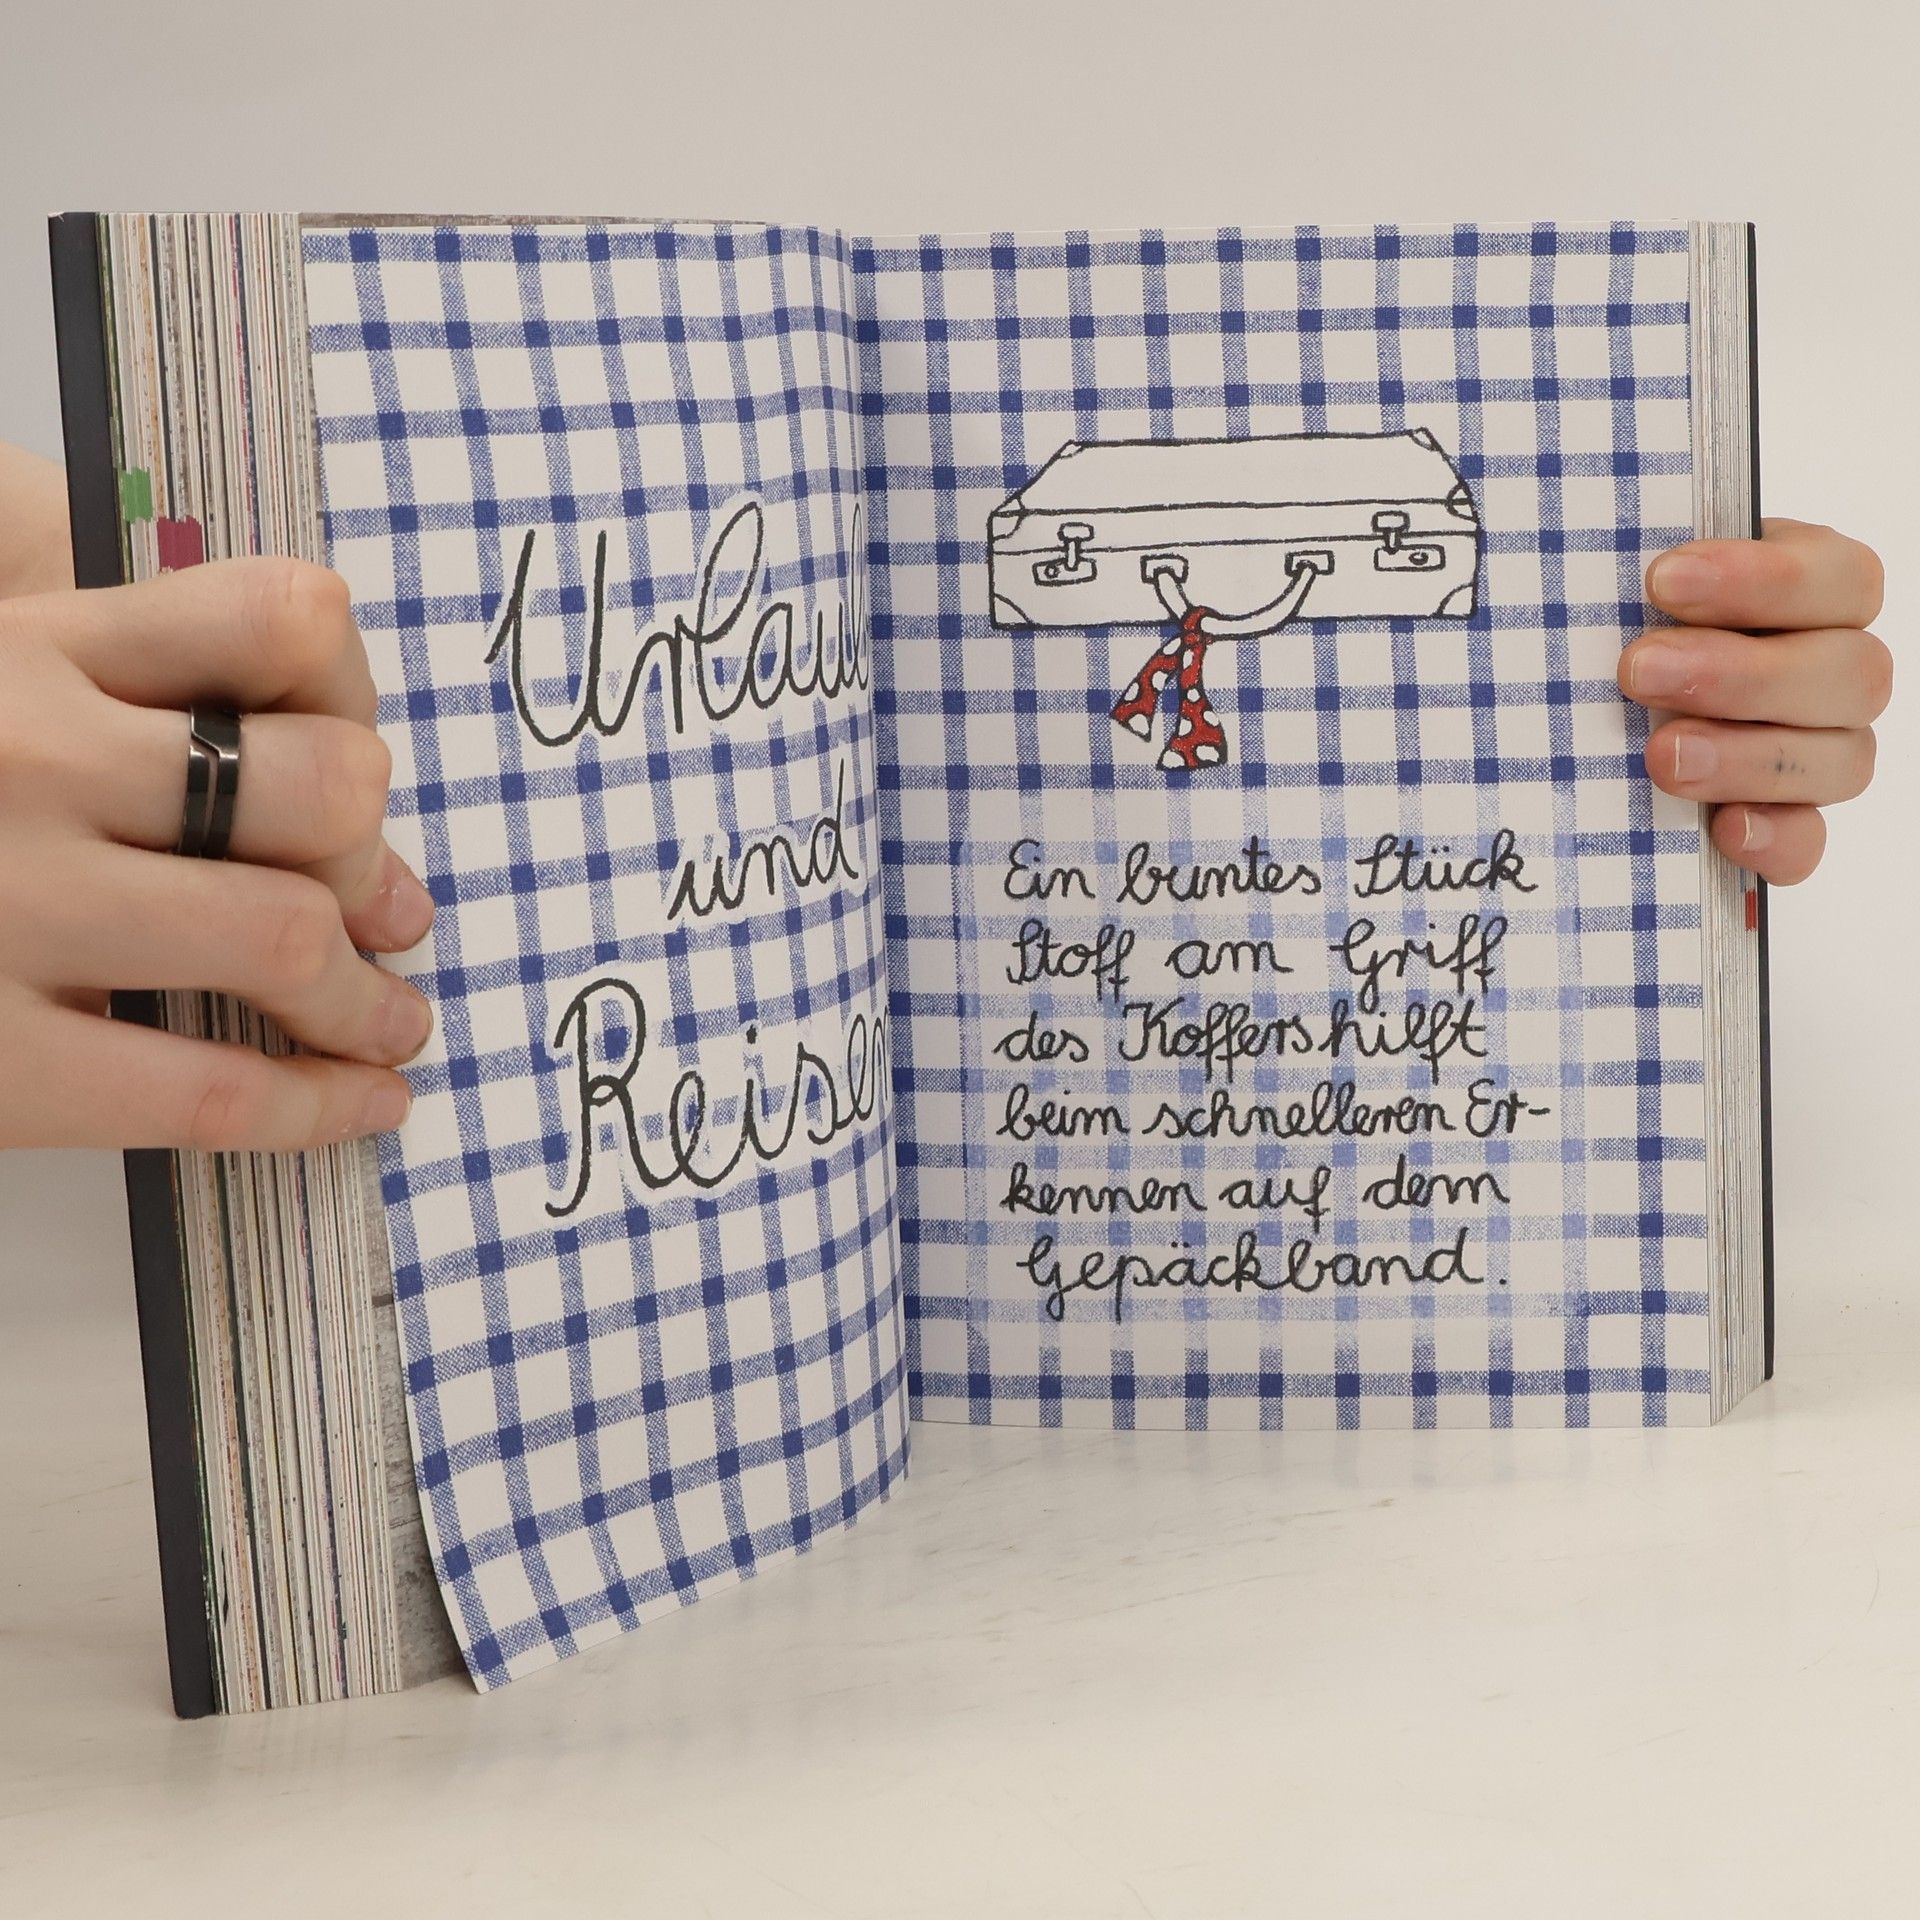 Urlaub
und
Reisen
Ein buntes Stück
Stoff am Griff
des Koffers hilft
beim schnelleren Er-
kennen auf dem
Gepäckband.